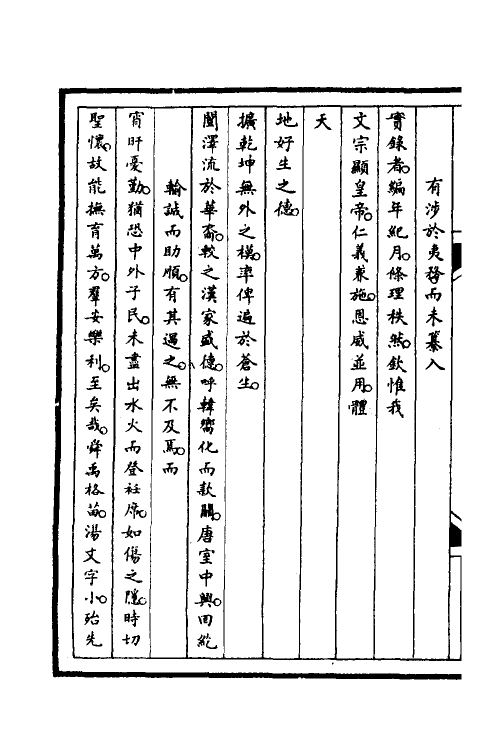 有涉於夷務而未纂入
實錄者。編年紀月。條理秩然。欽惟我
文宗顯皇帝。仁義兼施。恩威並用。體
天
地好生之德。
擴乾坤無外之模。率俾遍於蒼生。
闓澤流於華裔。較之漢家盛德。呼韓嚮化而款關。唐室中興。回紇
輸誠而助順。有其過之。無不及焉。而
宵旰憂勤。猶恐中外子民。未盡出水火而登衽席。如傷之隱。時切
聖懷。故能撫育萬方。羣安樂利。至矣哉。舜禹格苗。湯文字小。殆先